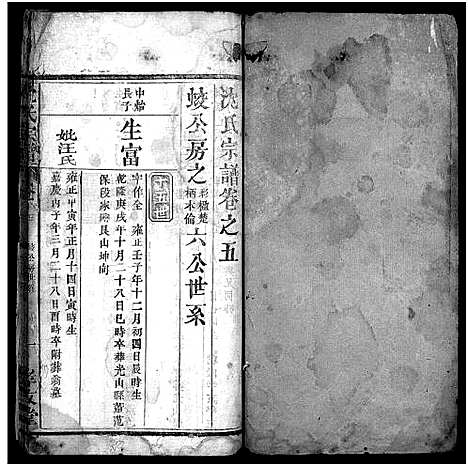 沈氏宗譜卷之五
蛟公房之彩楹楚栖木倫六公世系
十五世
中貽長子
生富
字作全 雍正壬子年十二月初四日辰時生
乾隆庚戌年十月二十八日巳時卒葬光山縣葛范
保段家灣艮山坤向
妣汪氏
雍正甲寅年正月十四日寅時生
嘉慶丙子年三月二十八日酉時卒附葬翁墓